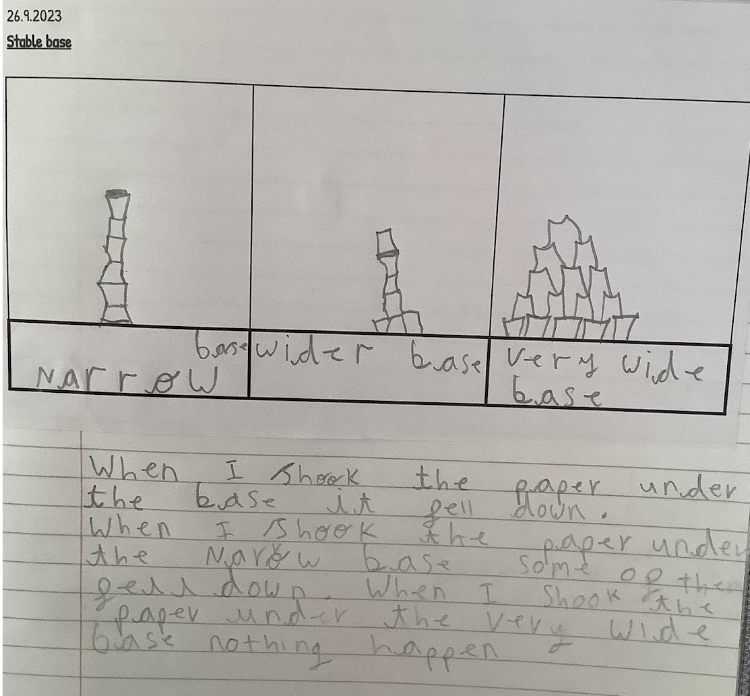 26.9.2023
Stable base
base
Narrow
wider base
very wide
base
When I shook the paper under
the base it fell down.
When I shook the paper under
the Narow base some of them
fell down. When I shook the
paper under the very wide
base nothing happen